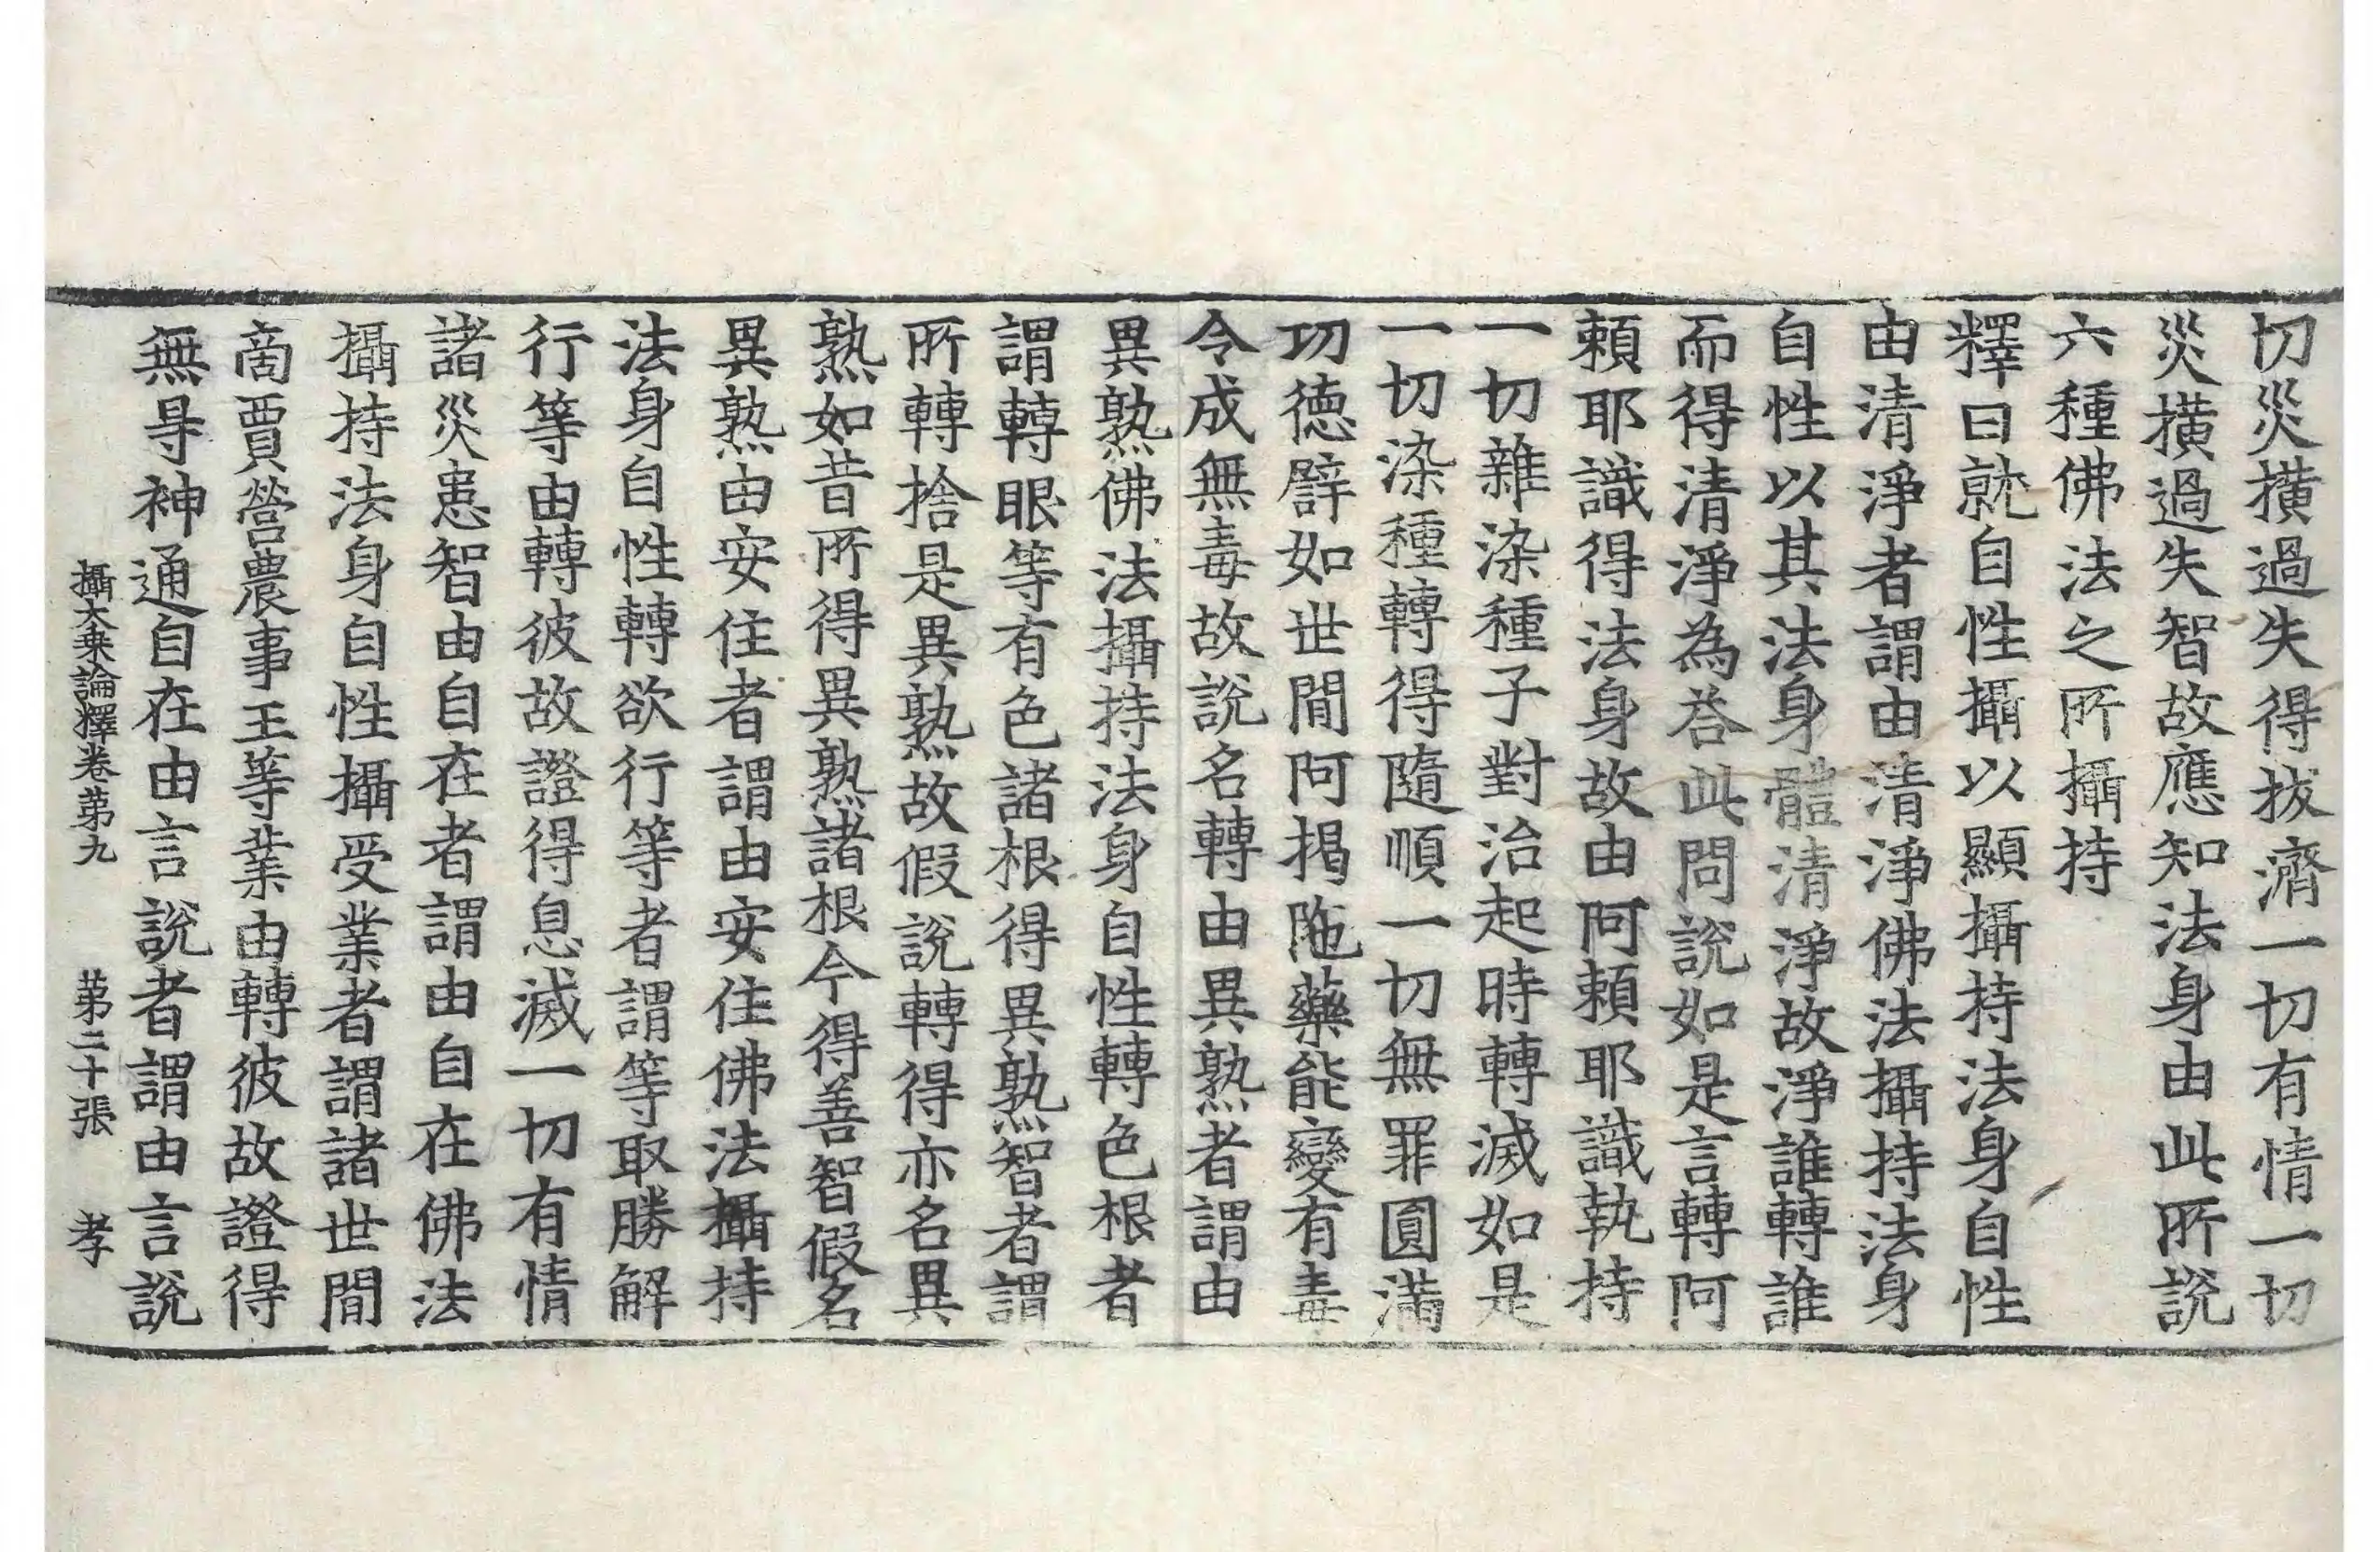 切災橫過失得拔濟一切有情一切
災橫過失智故應知法身由此所說
六種佛法之所攝持
釋曰就自性攝以顯攝持法身自性
由清淨者謂由清淨佛法攝持法身
自性以其法身體清淨故淨誰轉誰
而得清淨為荅此問說如是言轉阿
賴耶識得法身故由阿賴耶識執持
一切雜染種子對治起時轉滅如是
一切染種轉得隨順一切無罪圓滿
功德譬如世間阿揭陁藥能變有毒
令成無毒故說名轉由異熟者謂由
異熟佛法攝持法身自性轉色根者
謂轉眼等有色諸根得異熟智者謂
所轉捨是異熟故假說轉得亦名異
熟如昔所得異熟諸根今得善智假名
異熟由安住者謂由安住佛法攝持
法身自性轉欲行等者謂等取勝解
行等由轉彼故證得息滅一切有情
諸災患智由自在者謂由自在佛法
攝持法身自性攝受業者謂諸世間
啇賈營農事王等業由轉彼故證得
無㝵神通自在由言說者謂由言說
攝大乗論釋卷苐九　苐二十張　孝